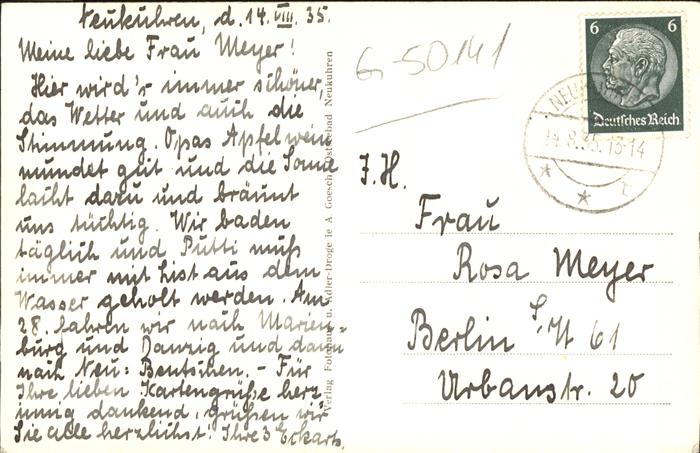 Neukuhren, d. 14. VIII. 35.
Meine liebe Frau Meyer!
Hier wird's immer schöner,
das Wetter und auch die
Stimmung. Opas Apfelwein
mundet gut und die Sonne
lacht dazu und bräunt
uns tüchtig. Wir baden
täglich und Putti muß
immer mit List aus dem
Wasser geholt werden. Am
28. fahren wir nach Marien=
burg und Danzig und dann
nach Neu= Bentschen. – Für
Ihre lieben Kartengrüße herz
innig dankend, grüßen wir
Sie alle herzlichst! Ihre 3 Eckarts.
Verlag Fotohaus u. Adler-Drogerie A Goesch Ostseebad Neukuhren
G-50141
6 6
Deutsches Reich
14.8.35.13-14
* * c
Frau
Rosa Meyer
Berlin S.W 61
Urbanstr. 20